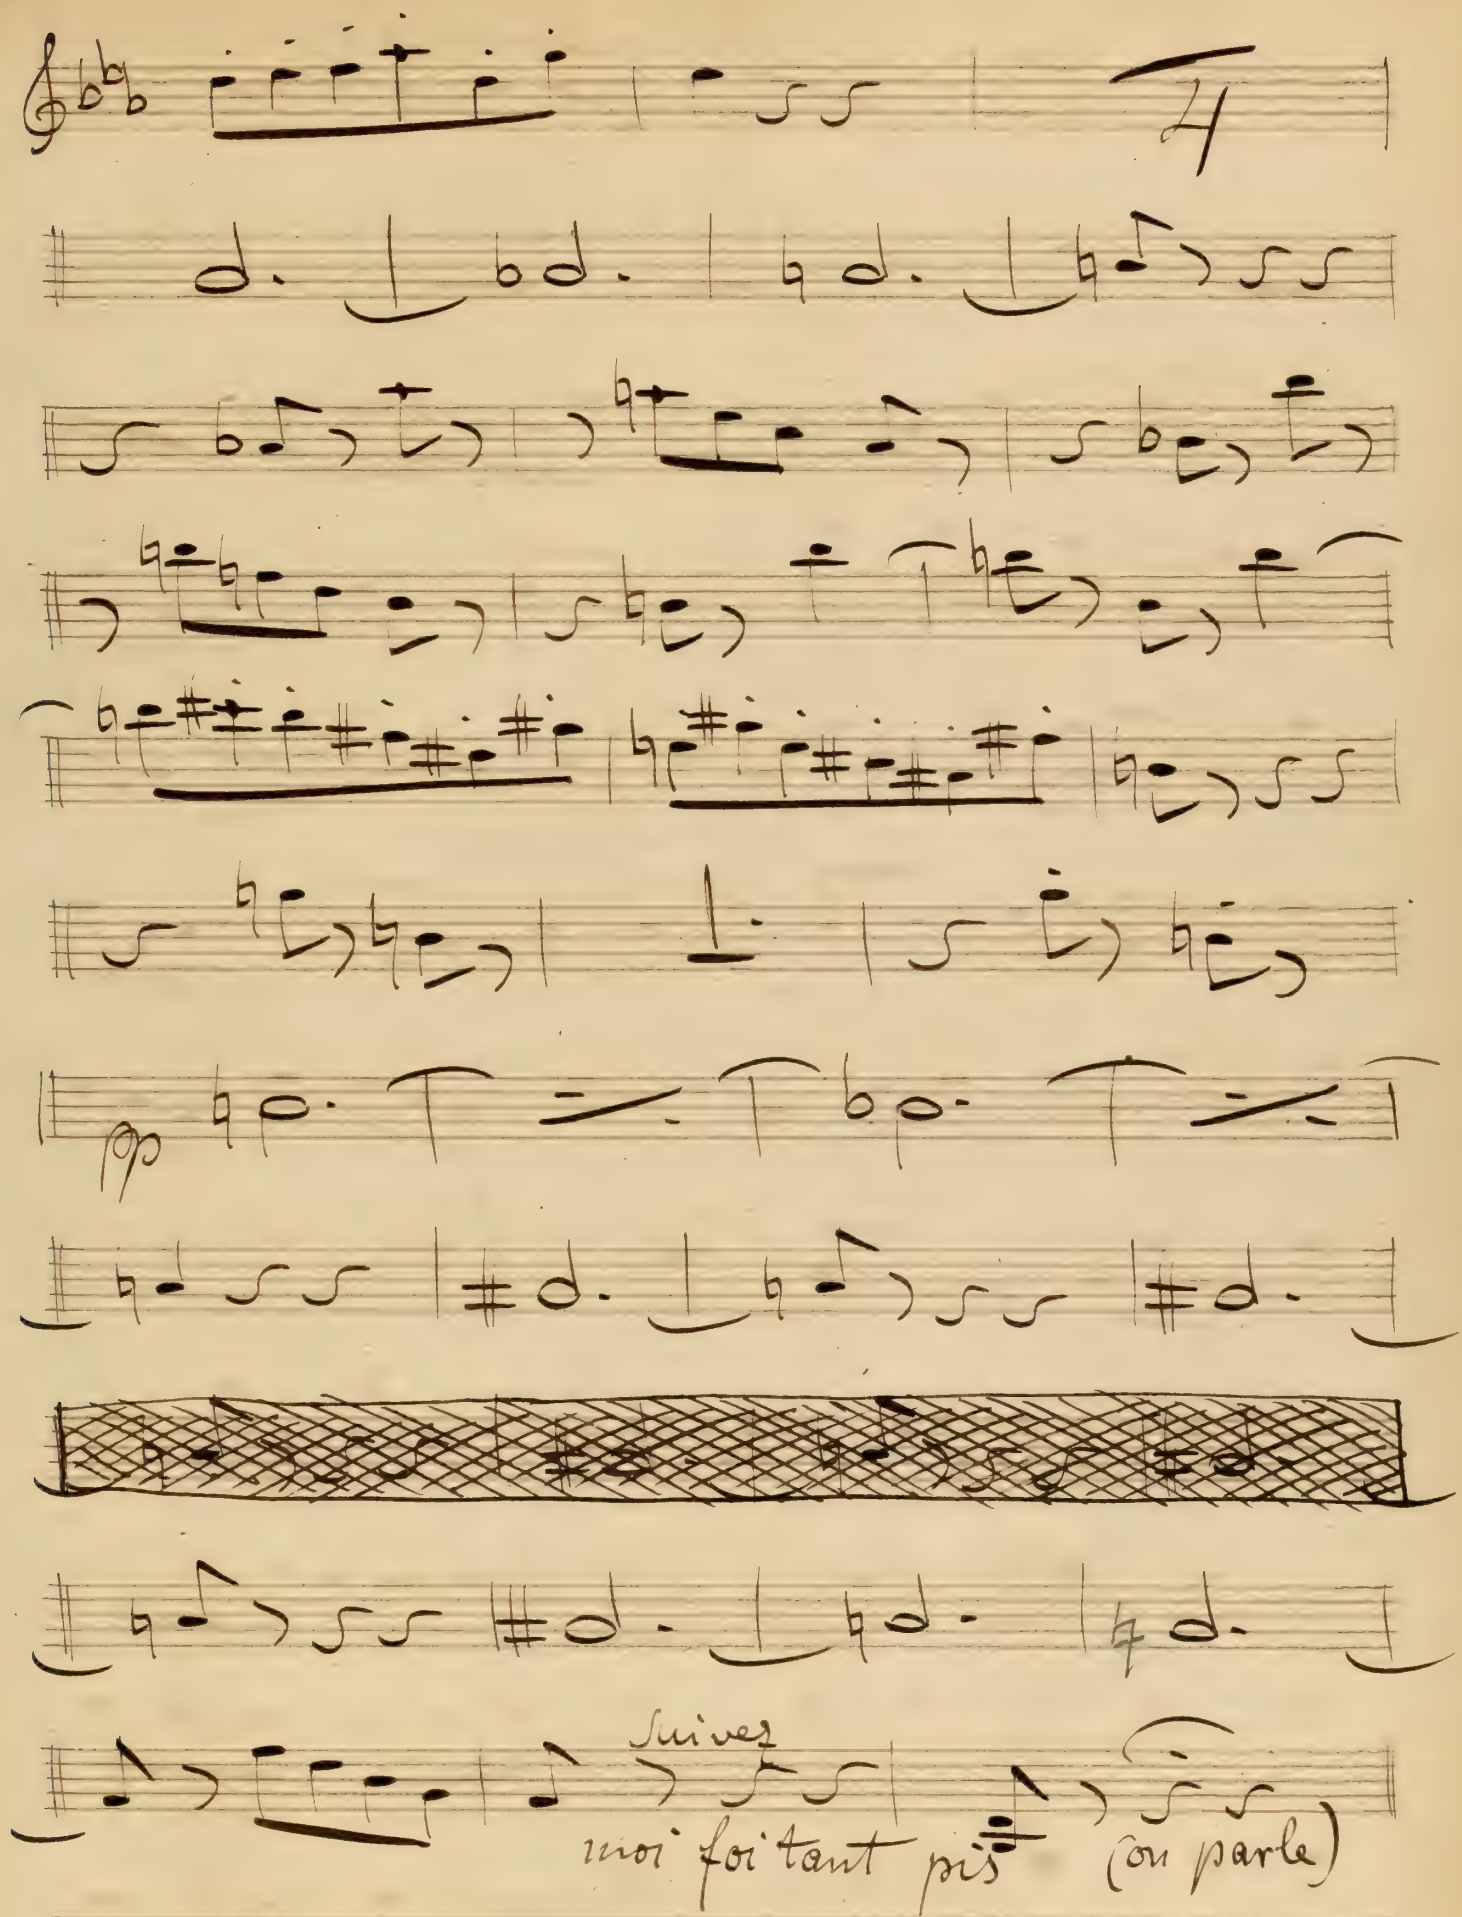 4
pp
Suivez
moi foi tant pis (on parle)